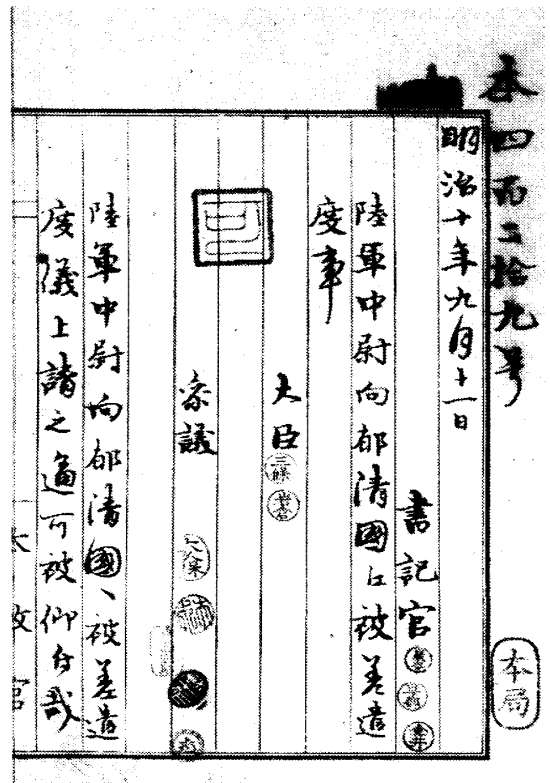 本四百二拾九号
明治十年九月十一日
書記官
本局
陸軍中尉向郁清國江被差遣
度事
大臣
三條
参議
陸軍中尉向郁清國ヘ被差遣
度儀上請之通可被仰付哉
太政官